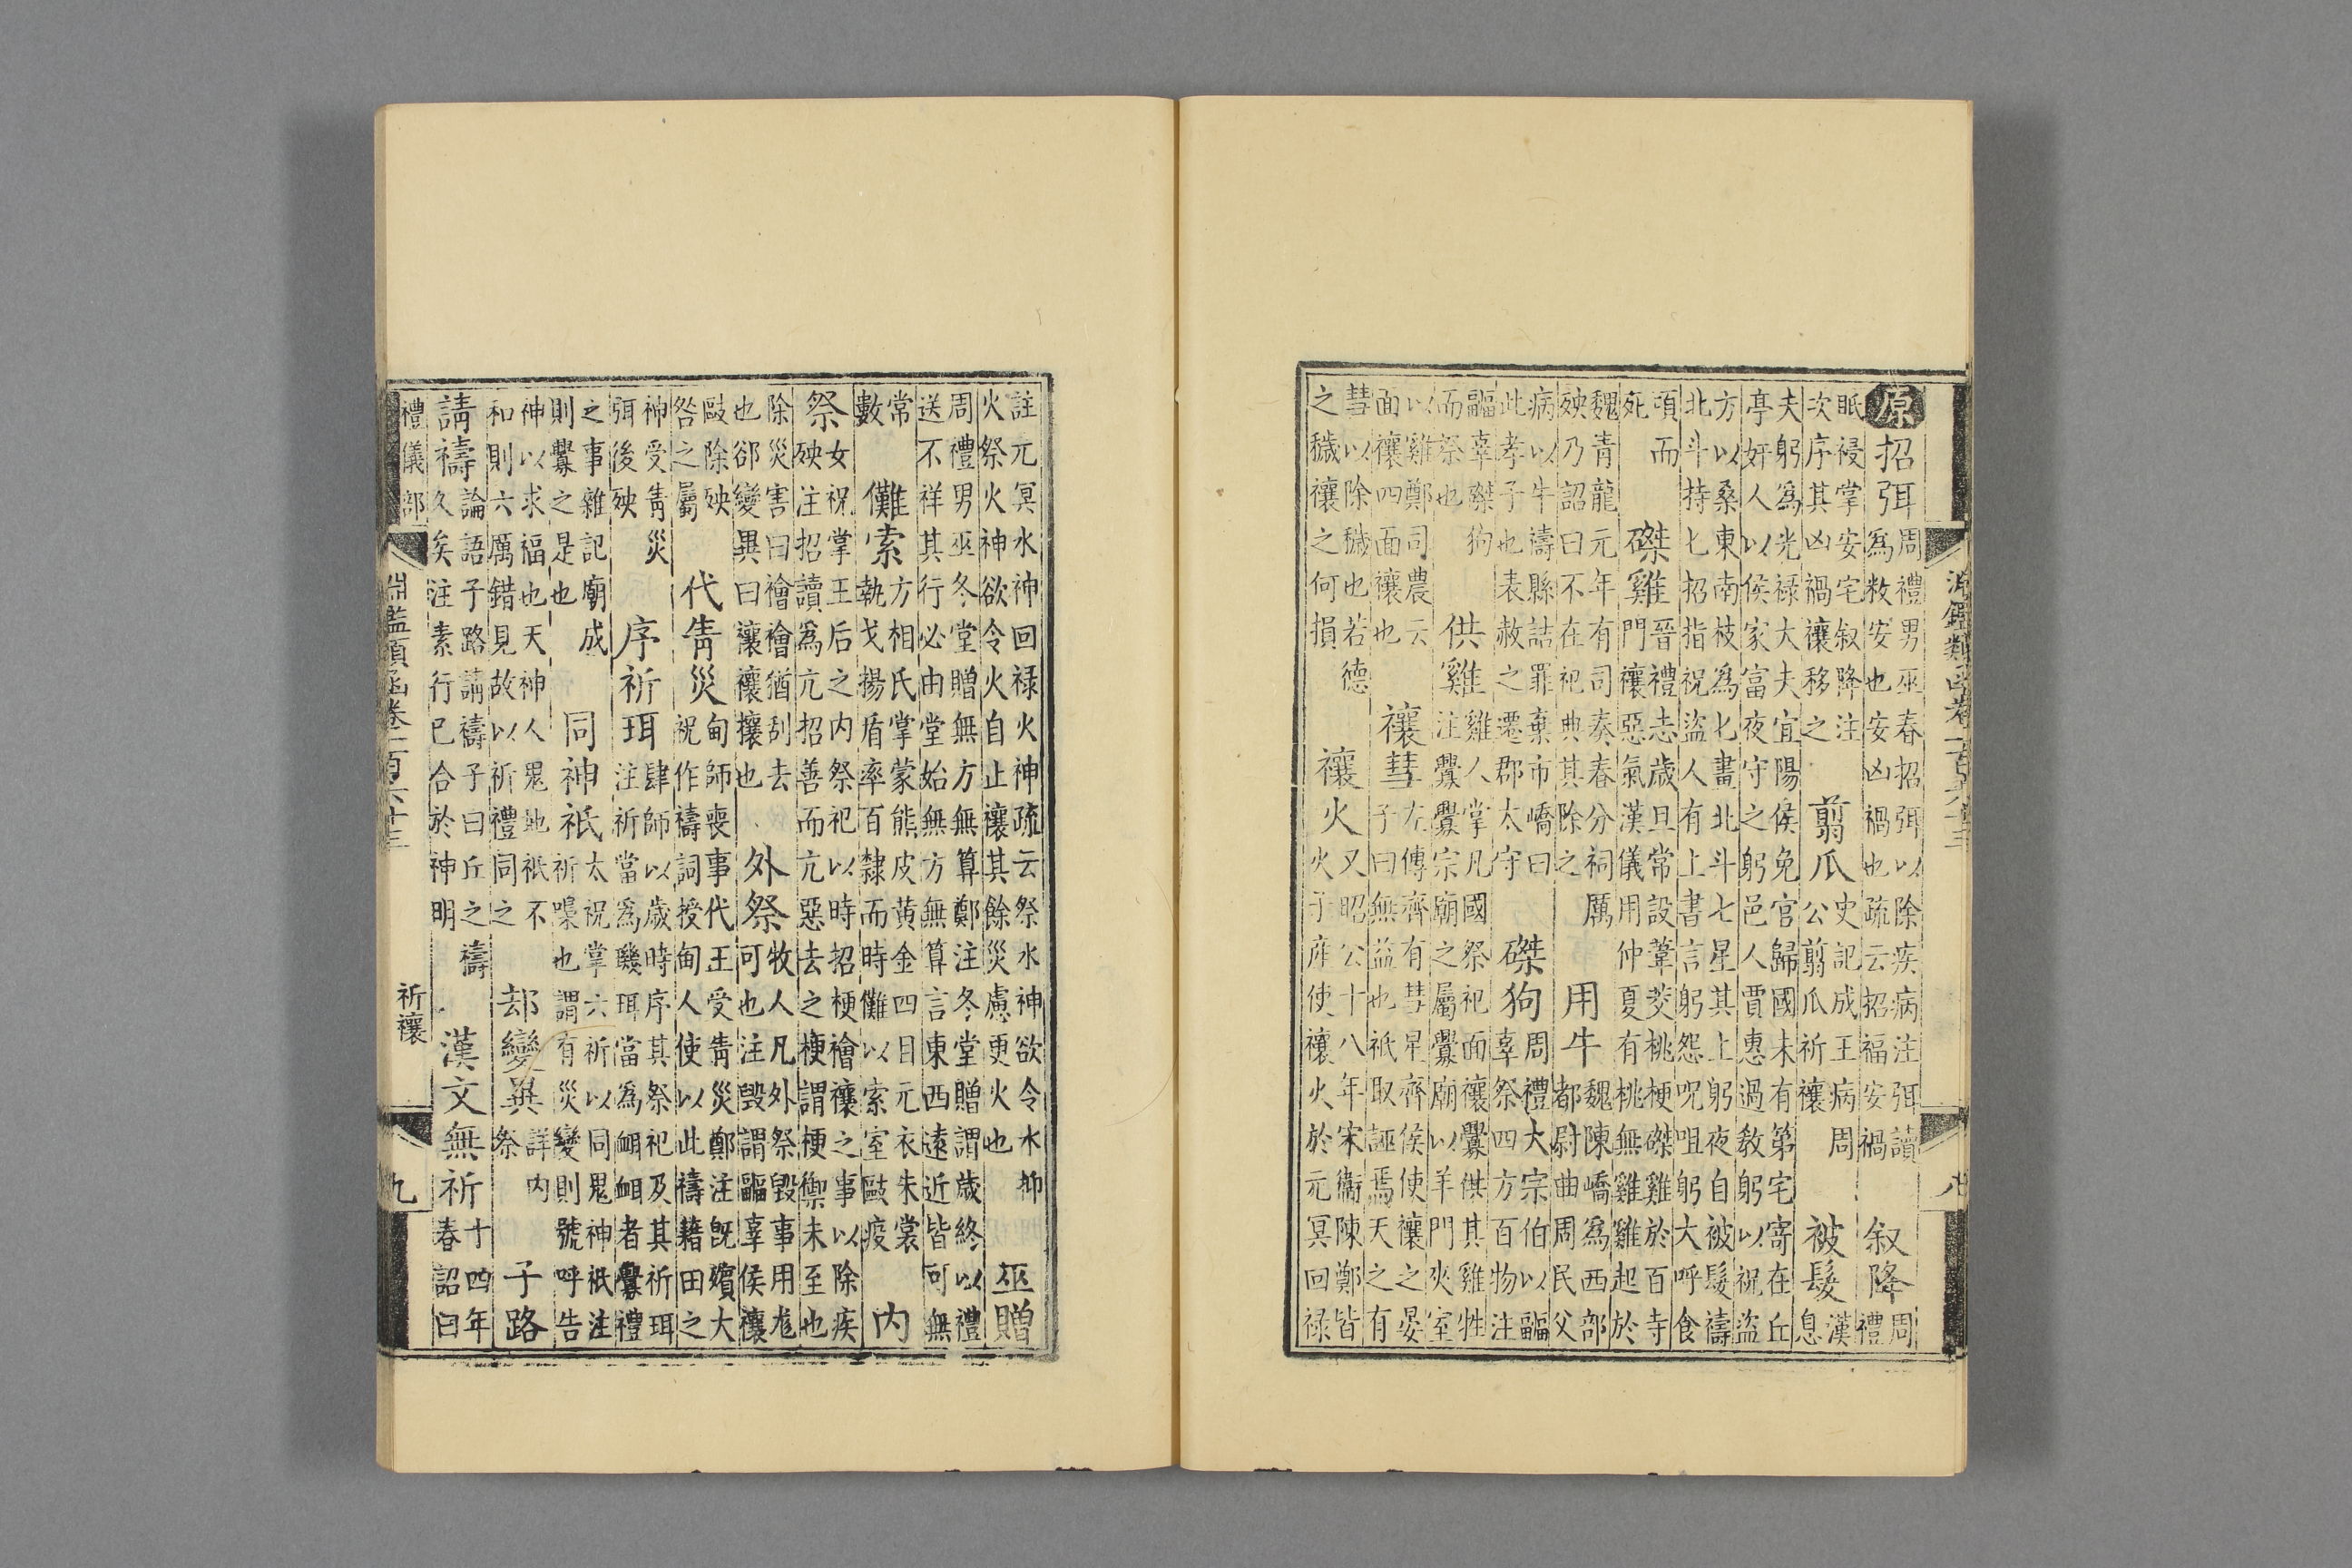 淵鑑類函卷一百六十三 八
原 招弭 周禮男巫春招弭以除疾病注弭讀為敉安也安凶禍也疏云招福安禍 叙降 周禮
眡祲掌安宅叙降注次序其凶禍禳移之 翦爪 史記成王病周公翦爪祈禳 被髮 漢息
夫躬為光禄大夫宜陽侯免官歸國未有第宅寄在丘亭奸人以侯家富夜守之躬邑人賈惠過教躬以祝盜
方以桑東南枝為匕畫北斗七星其上躬夜自被髮禱北斗持匕招指祝盜人有上書言躬怨呪咀躬大呼食
頭而死 磔雞 晉禮志歲旦常設葦茭桃梗磔雞於百寺門禳惡氣漢儀用仲夏有桃無雞雞起於
魏青龍元年有司奏春分祠厲殃乃詔曰不在祀典其除之 用牛 魏陳嶠為西部都尉曲周民父
病以牛禱縣詰罪棄市嶠曰此孝子也表赦之遷郡太守 磔狗 周禮大宗伯以疈辜祭四方百物注
疈辜磔狗而祭也 供雞 雞人掌凡國祭祀面禳釁供其雞牲注釁釁宗廟之屬釁廟以羊門夾室
以雞鄭司農云面禳四面禳也 禳彗 左傳齊有彗星齊侯使禳之晏子曰無益也祇取誣焉天之有
彗以除穢也若德之穢禳之何損 禳火 又昭公十八年宋衞陳鄭皆火子產使禳火於元冥回禄
註元冥水神回禄火神疏云祭水神欲令水抑火祭火神欲令火自止禳其餘災慮更火也 巫贈
周禮男巫冬堂贈無方無算鄭注冬堂贈謂歲終以禮送不祥其行必由堂始無方無算言東西遠近皆可無
常數 儺索 方相氏掌蒙熊皮黃金四目元衣朱裳執戈揚盾率百隸而時儺以索室毆疫 内
祭 女祝掌王后之内祭祀以時招梗禬禳之事以除疾殃注招讀為亢招善而亢惡去之梗謂梗禦未至也
除災害曰禬禬猶刮去也卻變異曰禳禳攘也 外祭 牧人凡外祭毀事用尨可也注毀謂疈辜侯禳
毆除殃咎之屬 代眚災 甸師喪事代王受眚災鄭注既殯大祝作禱詞授甸人使以此禱藉田之
神受眚災弭後殃 序祈珥 肆師以歲時序其祭祀及其祈珥注祈當為畿珥當為衈衈者釁禮
之事雜記廟成則釁之是也 同神祇 太祝掌六祈以同鬼神祇注祈嘄也謂有災變則號呼告
神以求福也天神人鬼地祇不和則六厲錯見故以祈禮同之 卻變異 詳内祭 子路
請禱 論語子路請禱子曰丘之禱久矣注素行已合於神明 漢文無祈 十四年春詔曰
禮儀部 淵鑑類函卷一百六十三 祈禳 九